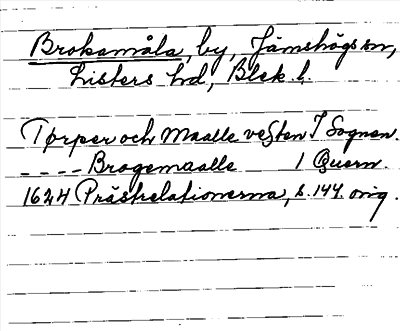 Brokamåla, by, Jämshögs sn,
Listers hd, Blek. l.
Tørper och Maalle vesten I Sognen.
---- Brogemaalle 1 Quern.
1624 Prästrelationerna, s. 144. orig.